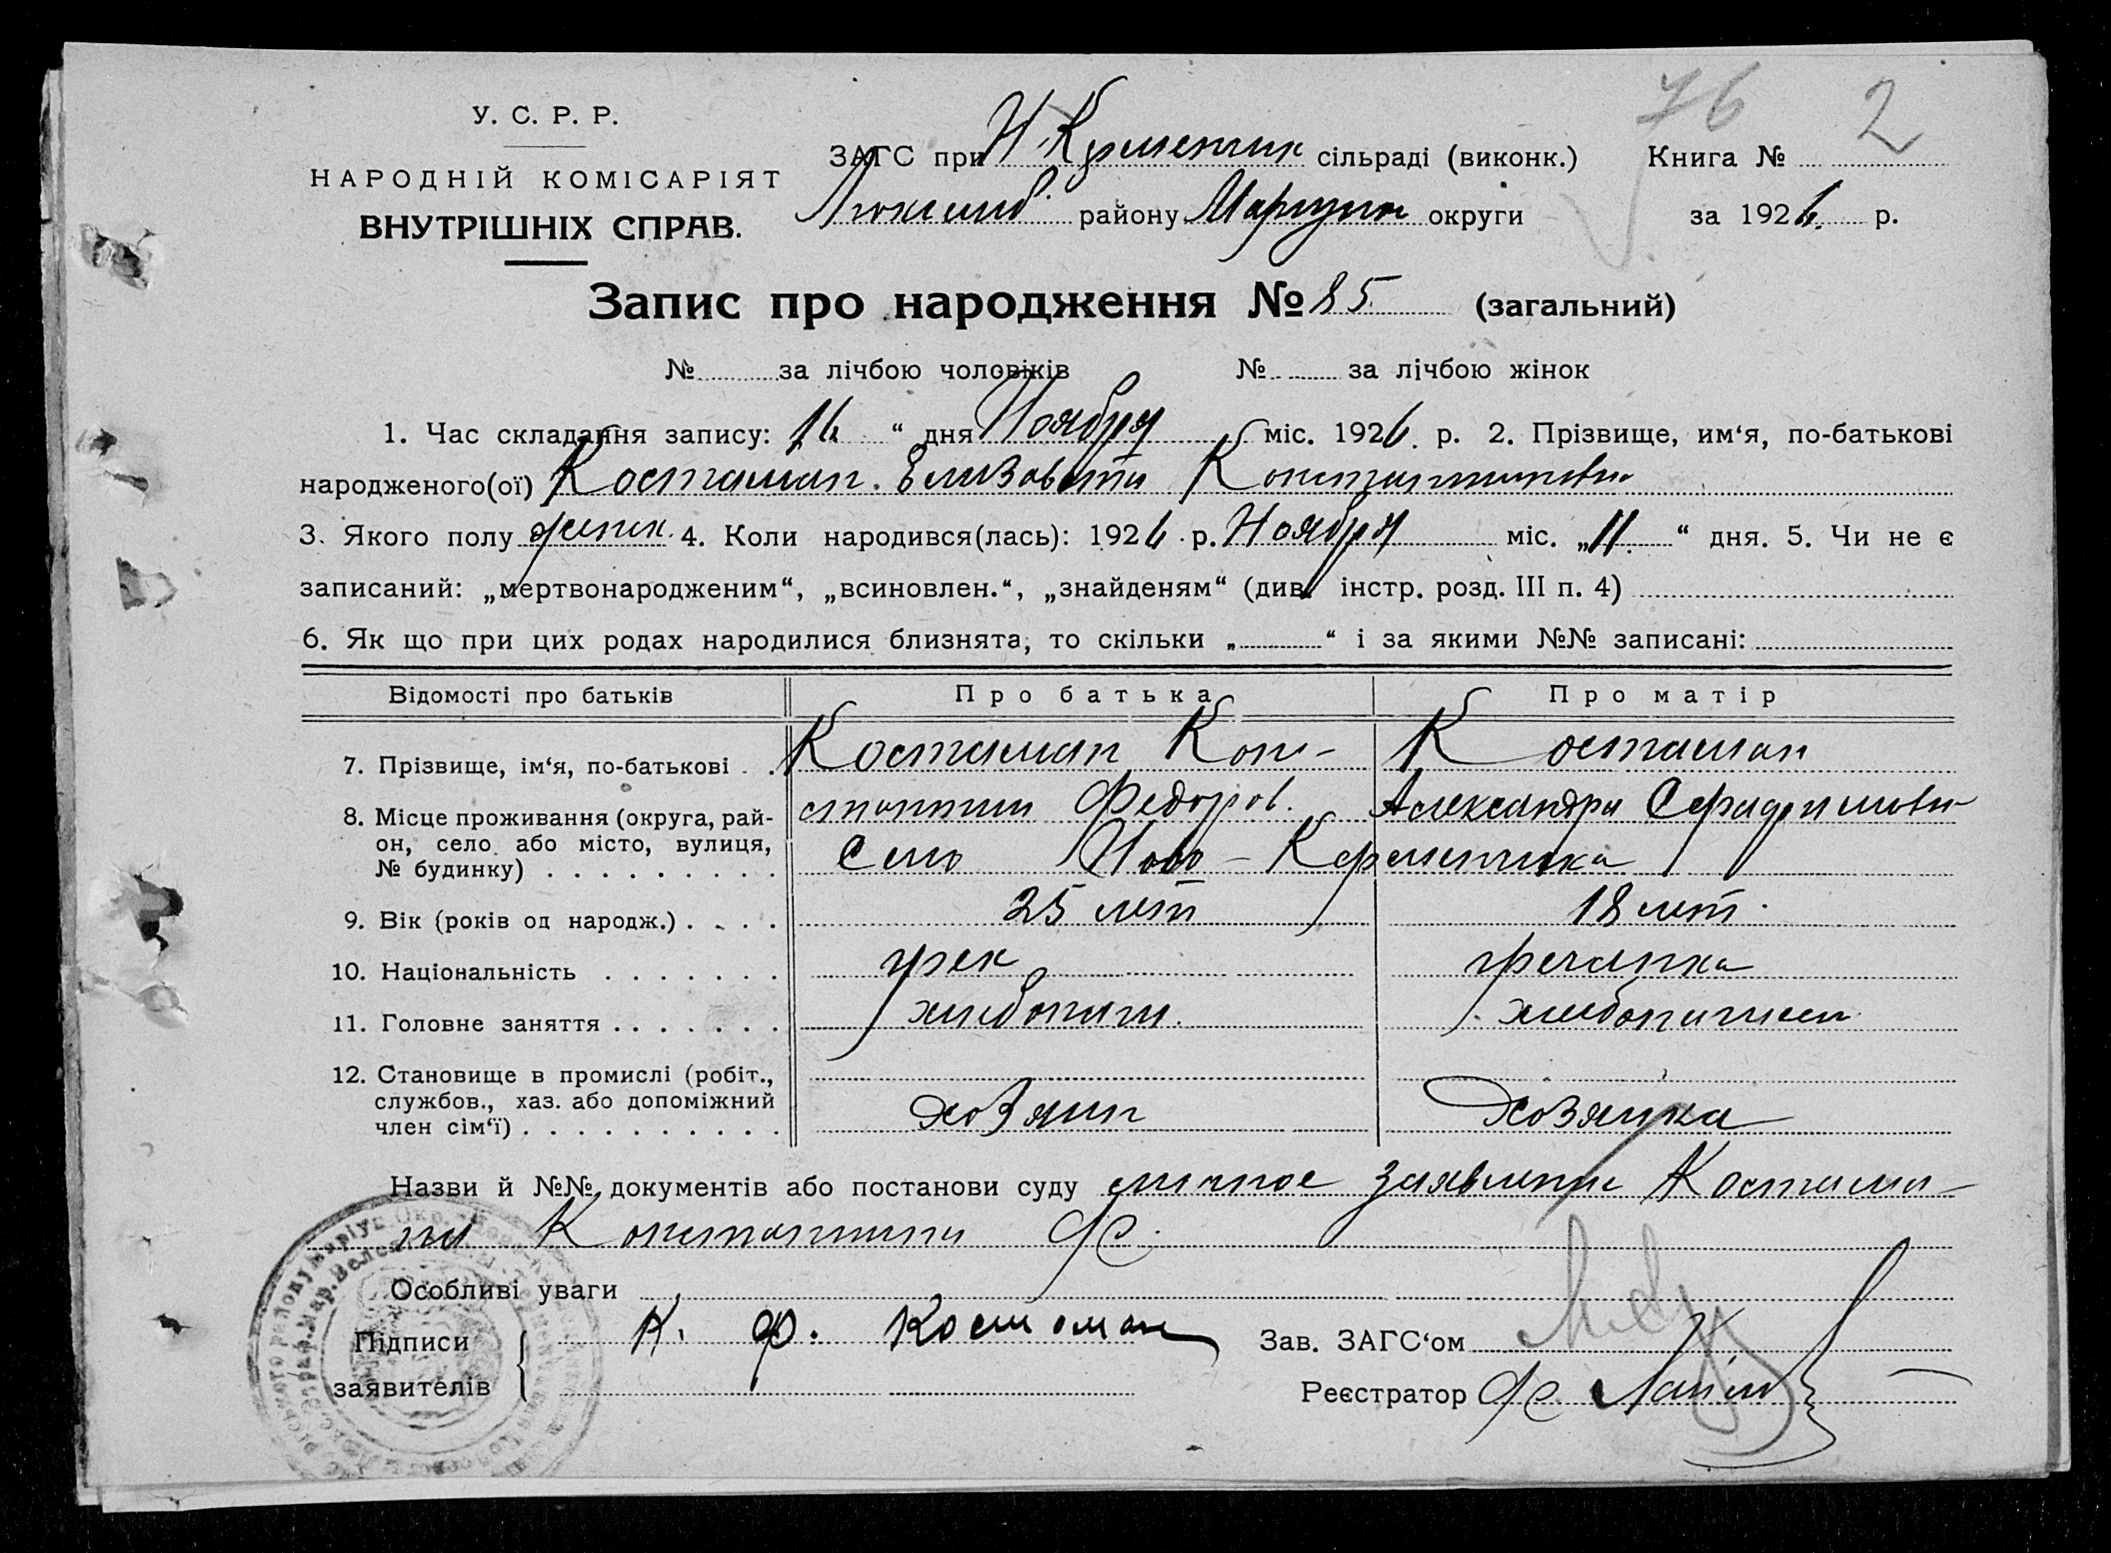 76 2
У. С. Р. Р.
НАРОДНІЙ КОМІСАРІЯТ
ВНУТРІШНІХ СПРАВ.
ЗАГС при Н-Керменчик сільраді (виконк.) Книга №
району Мариупол округи за 1926 р.
Запис про народження № 85. (загальний)
№ за лічбою чоловіків № за лічбою жінок
1. Час складання запису: 16 “ дня Ноября міс. 1926. р. 2. Прізвище, им‘я, по-батькові
народженого(ої) Костаман. Елизавета Константиновна
3. Якого полу женск. 4. Коли народився(лась): 1926 р. Ноября міс. „11.“ дня. 5. Чи не є
записаний: „мертвонародженим“, „всиновлен.“, „знайденям“ (див. інстр. розд. III п. 4)
6. Як що при цих родах народилися близнята, то скільки „ “ і за якими №№ записані:
Відомості про батьків Про батька Про матір
7. Прізвище, ім‘я, по-батькові . . Костаман Кон- Костаман
стантин Федоров. Александра Серафимовна
8. Місце проживання (округа, рай-
он, село або місто, вулиця,
№ будинку) . . . . . . . . . Село Ново-Керменчика
9. Вік (років од народж.) . . . . 25 лет 18 лет.
10. Національність . . . . . . . грек гречанка
11. Головне заняття . . . . . . .
12. Становище в промислі (робіт.,
службов., хаз. або допоміжний
член сім‘ї) . . . . . . . . . . хозяин Хозяйка
Назви й №№ документів або постанови суду личное заявление Костама-
на Константина Ф.
Особливі уваги
Підписи К. Ф. Костоман Зав. ЗАГС‘ом
заявителів Реєстратор Ф.